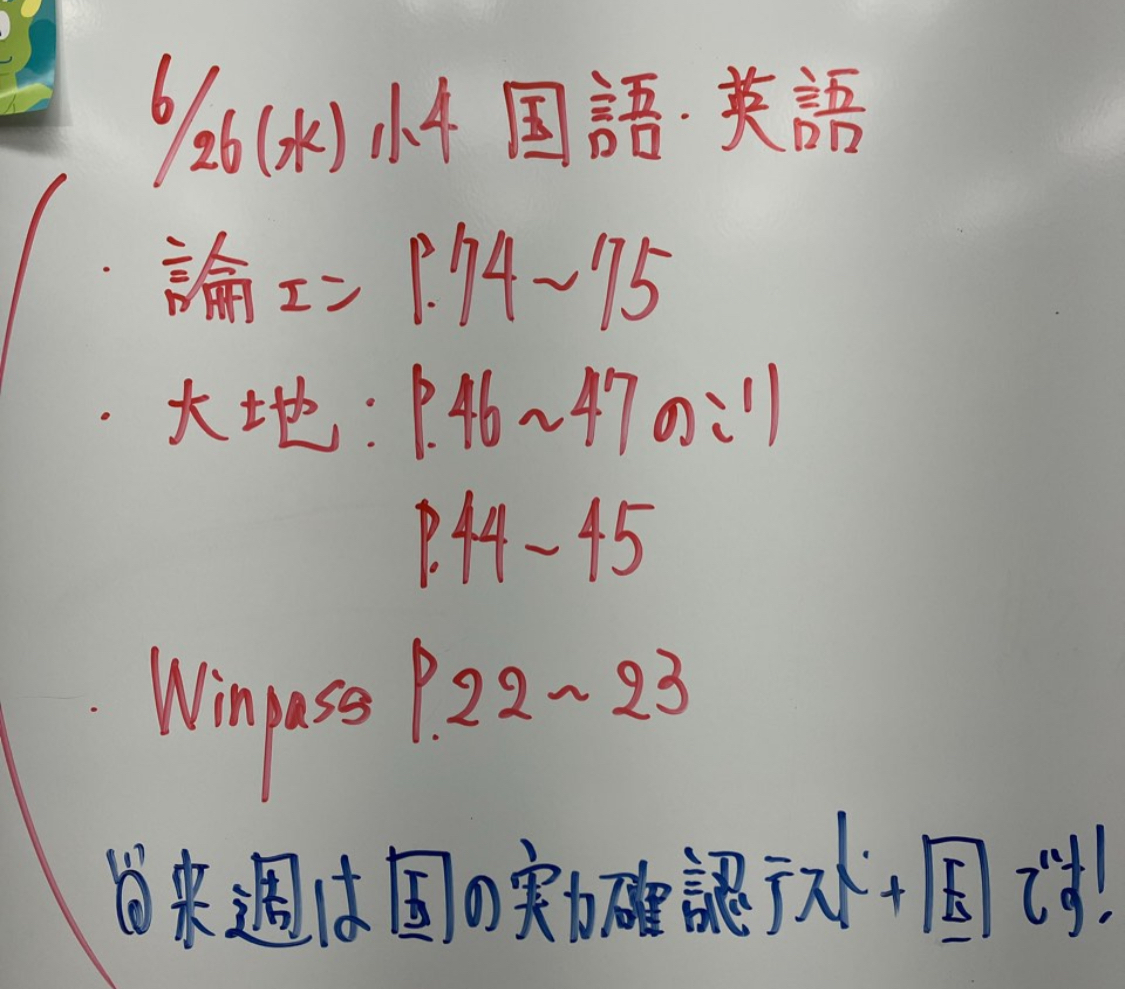 6/26(水) 小4 国語・英語
・論エン P.74〜75
・大地:P.46〜47のこり
P.44〜45
・Winpass P.22〜23
来週は国の実力確認テスト+国です!